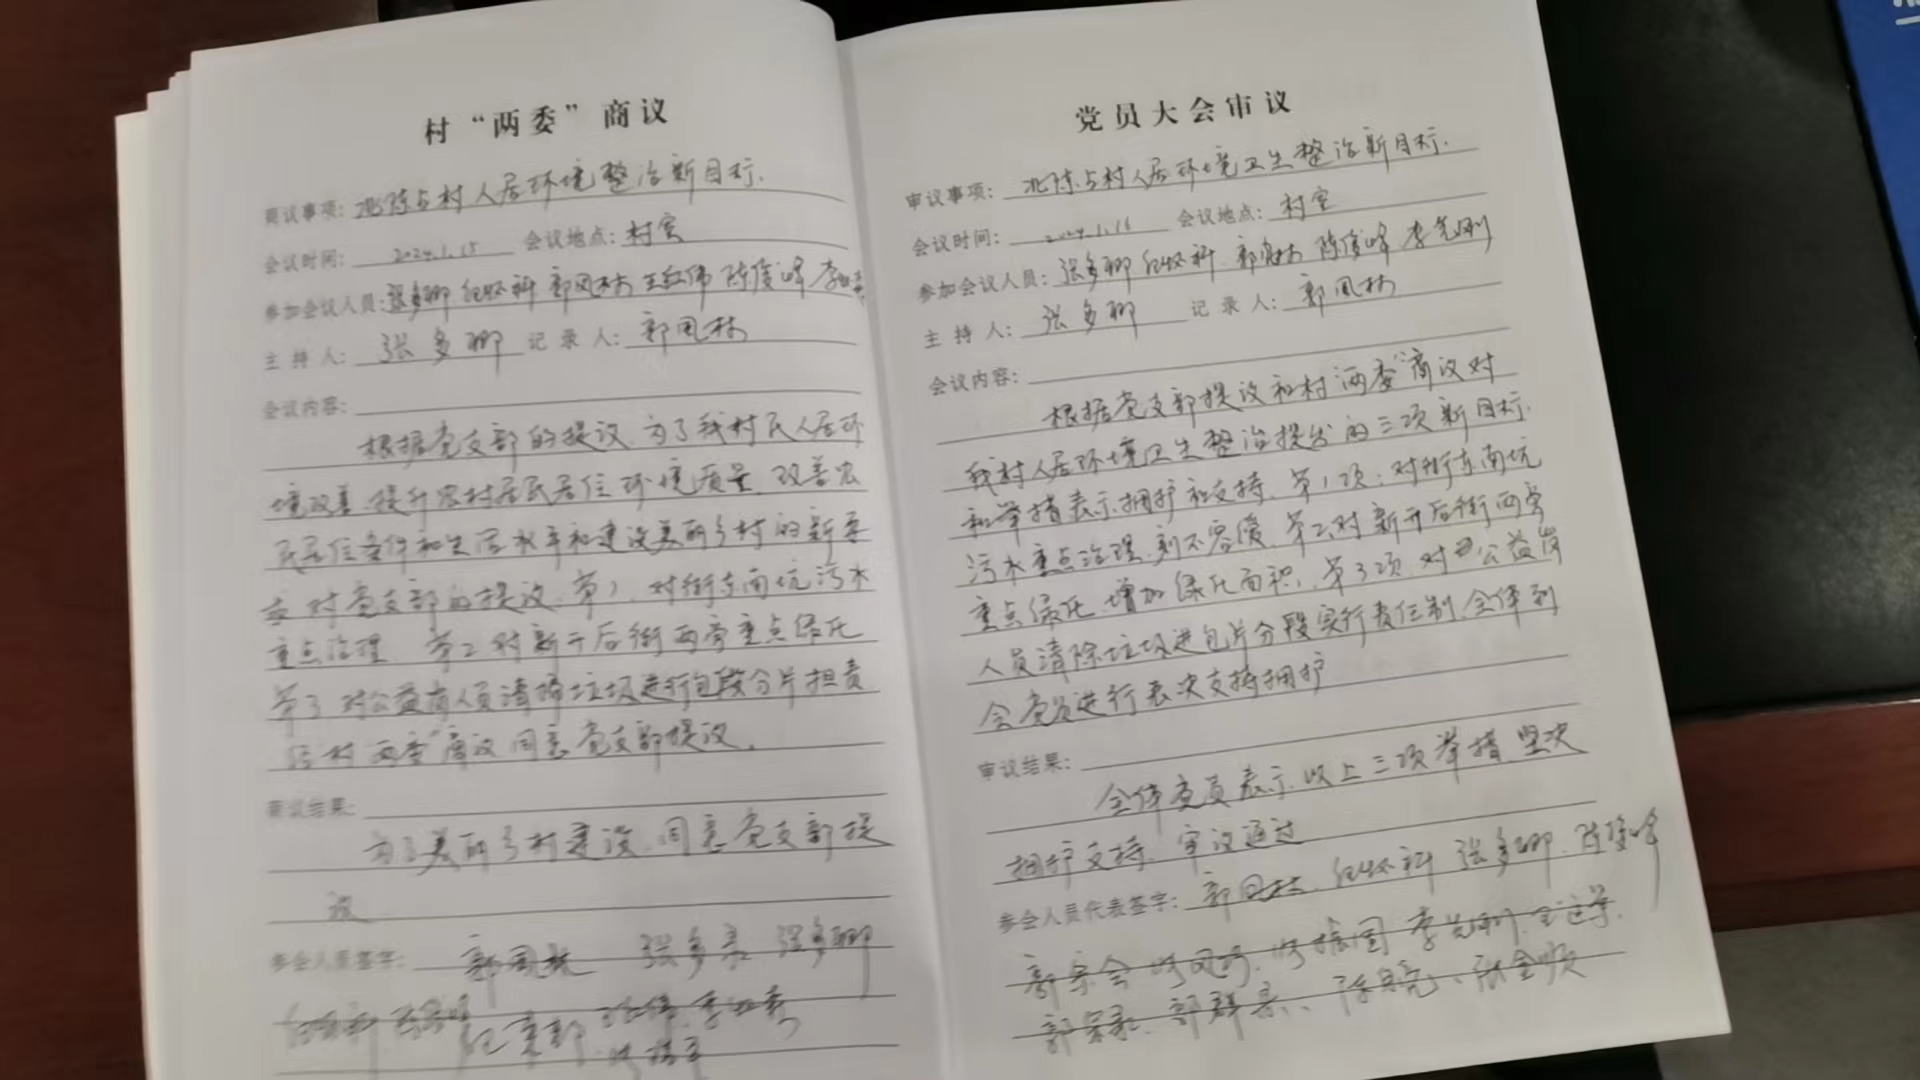 村“两委”商议
商议事项：北陈占村人居环境整治新目标.
会议时间：2024.1.15 会议地点：村室
参加会议人员：张多卿 郭凤林 陈俊峰
主持人：张多卿 记录人：郭凤林
会议内容：
根据党支部的提议.为了我村民人居环
境改善.提升农村居民居住环境质量.改善农
民居住条件和生活水平和建设美丽乡村的新要
求 对党支部的提议.第1.对街东南坑污水
重点治理.第2对新开后街两旁重点绿化
第3对公益岗人员清扫垃圾进行包段分片担责
经村“两委”商议同意党支部提议.
商议结果：
为了美丽乡村建设.同意党支部提
议
参会人员签字：郭凤林 张多卿
党员大会审议
审议事项：北陈占村人居环境卫生整治新目标.
会议时间：2024.1.16 会议地点：村室
参加会议人员：张多卿 陈俊峰 李先刚
主持人：张多卿 记录人：郭凤林
会议内容：
根据党支部提议和村“两委”商议对
我村人居环境卫生整治提出的三项新目标.
和举措表示拥护和支持.第1项：对街东南坑
污水重点治理.刻不容缓.第二对新开后街两旁
重点绿化.增加绿化面积.第3项.对公益岗
人员清除垃圾进包片分段实行责任制.全体到
会党员进行表决支持拥护
审议结果：
全体党员表示.以上三项举措.坚决
拥护支持.审议通过
参会人员代表签字：郭凤林 张多卿.陈俊峰
李先刚